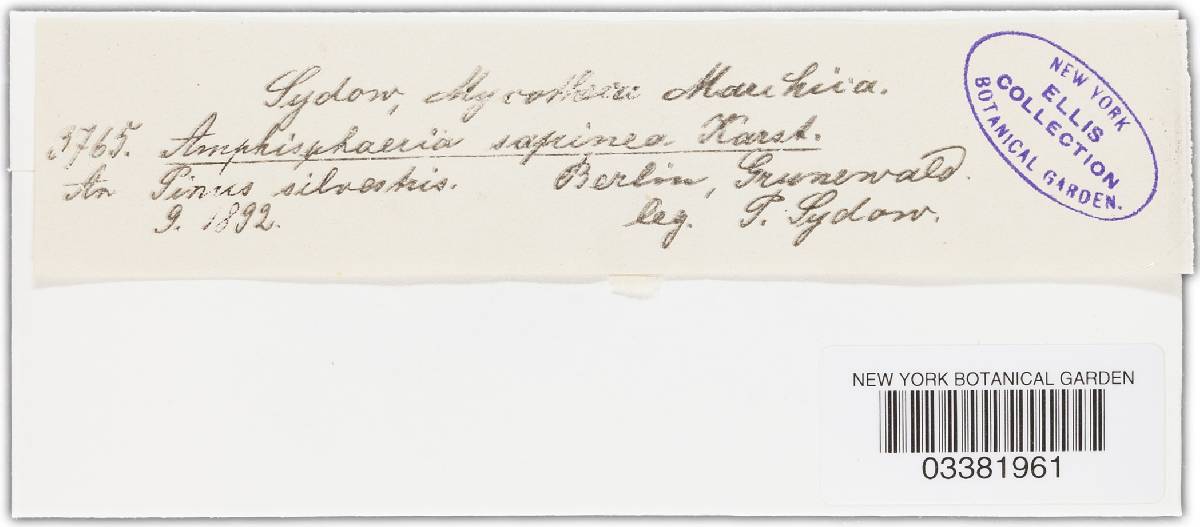 Sydow, Mycotheca Marchica.
3765. Amphisphaeria sapinea Karst.
An Pinus silvestris. Berlin, Grunewald.
9. 1892. leg. P. Sydow.
NEW YORK
ELLIS
COLLECTION
BOTANICAL GARDEN.
NEW YORK BOTANICAL GARDEN
03381961